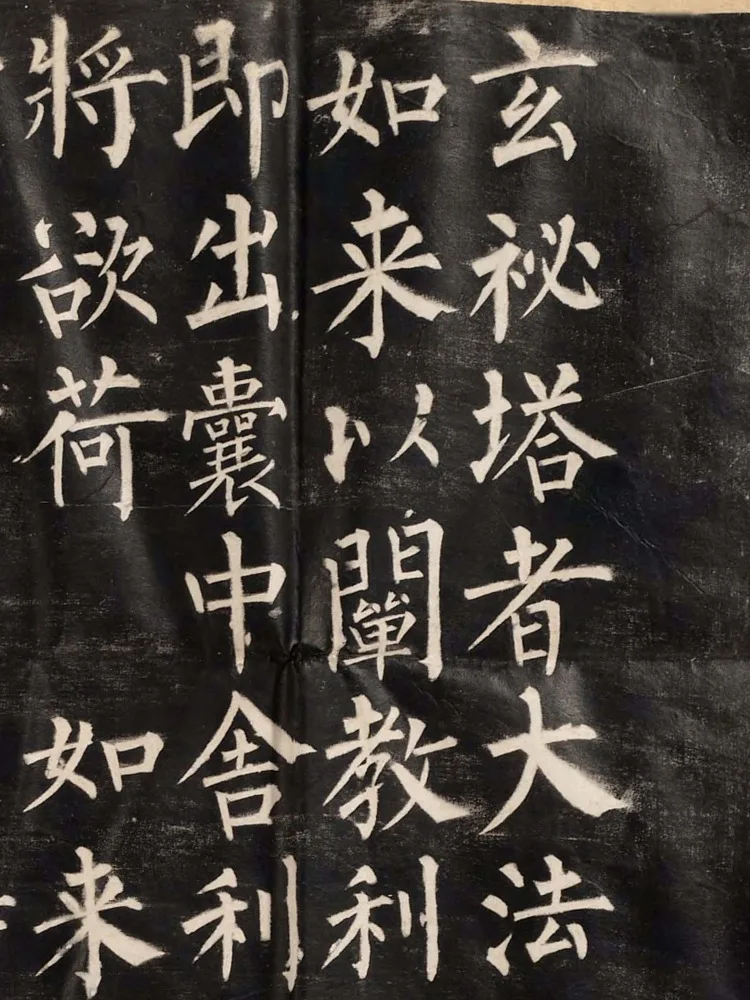 玄祕塔者大法
如来以闡教利
即出囊中舎利
將欲荷 如来